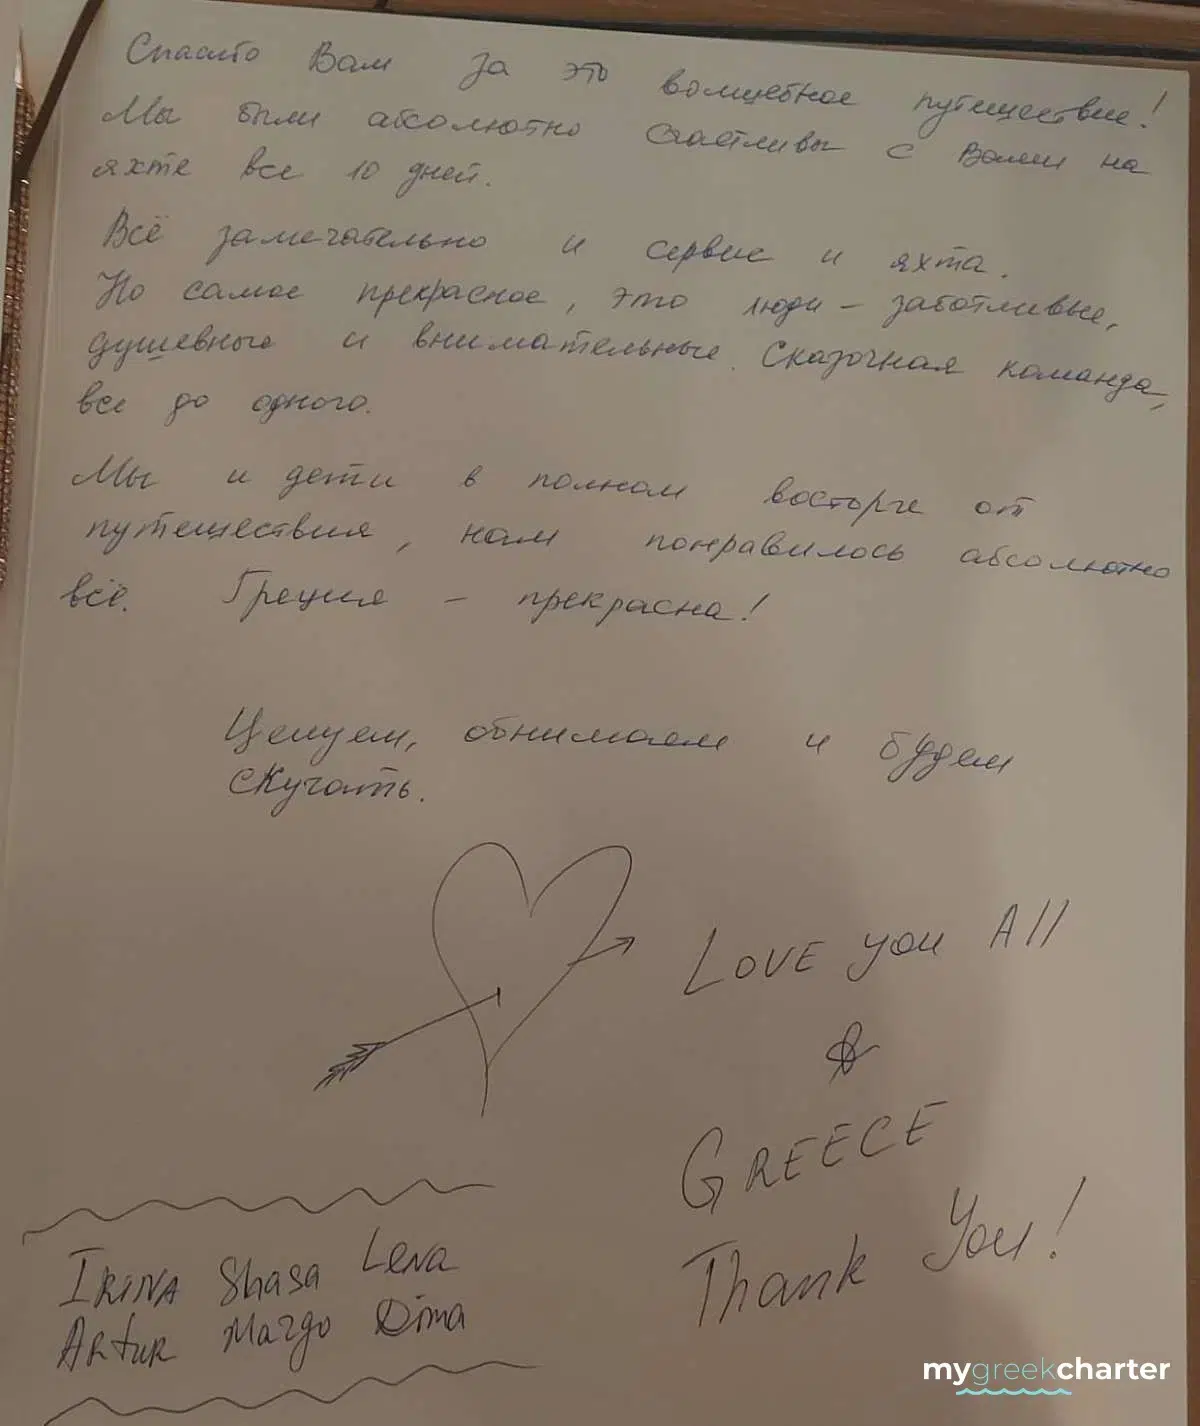 Спасибо Вам за это волшебное путешествие!
Мы были абсолютно счастливы с Вами на
яхте все 10 дней.
Всё замечательно и сервис и яхта.
Но самое прекрасное, это люди – заботливые,
душевные и внимательные. Сказочная команда,
все до одного.
Мы и дети в полном восторге от
путешествия, нам понравилось абсолютно
всё. Греция – прекрасна!
Целуем, обнимаем и будем
скучать.
LOVE you All
&
GREECE
Thank You!
IRINA Shasa Lena
ARTUR Margo Dima
mygreekcharter